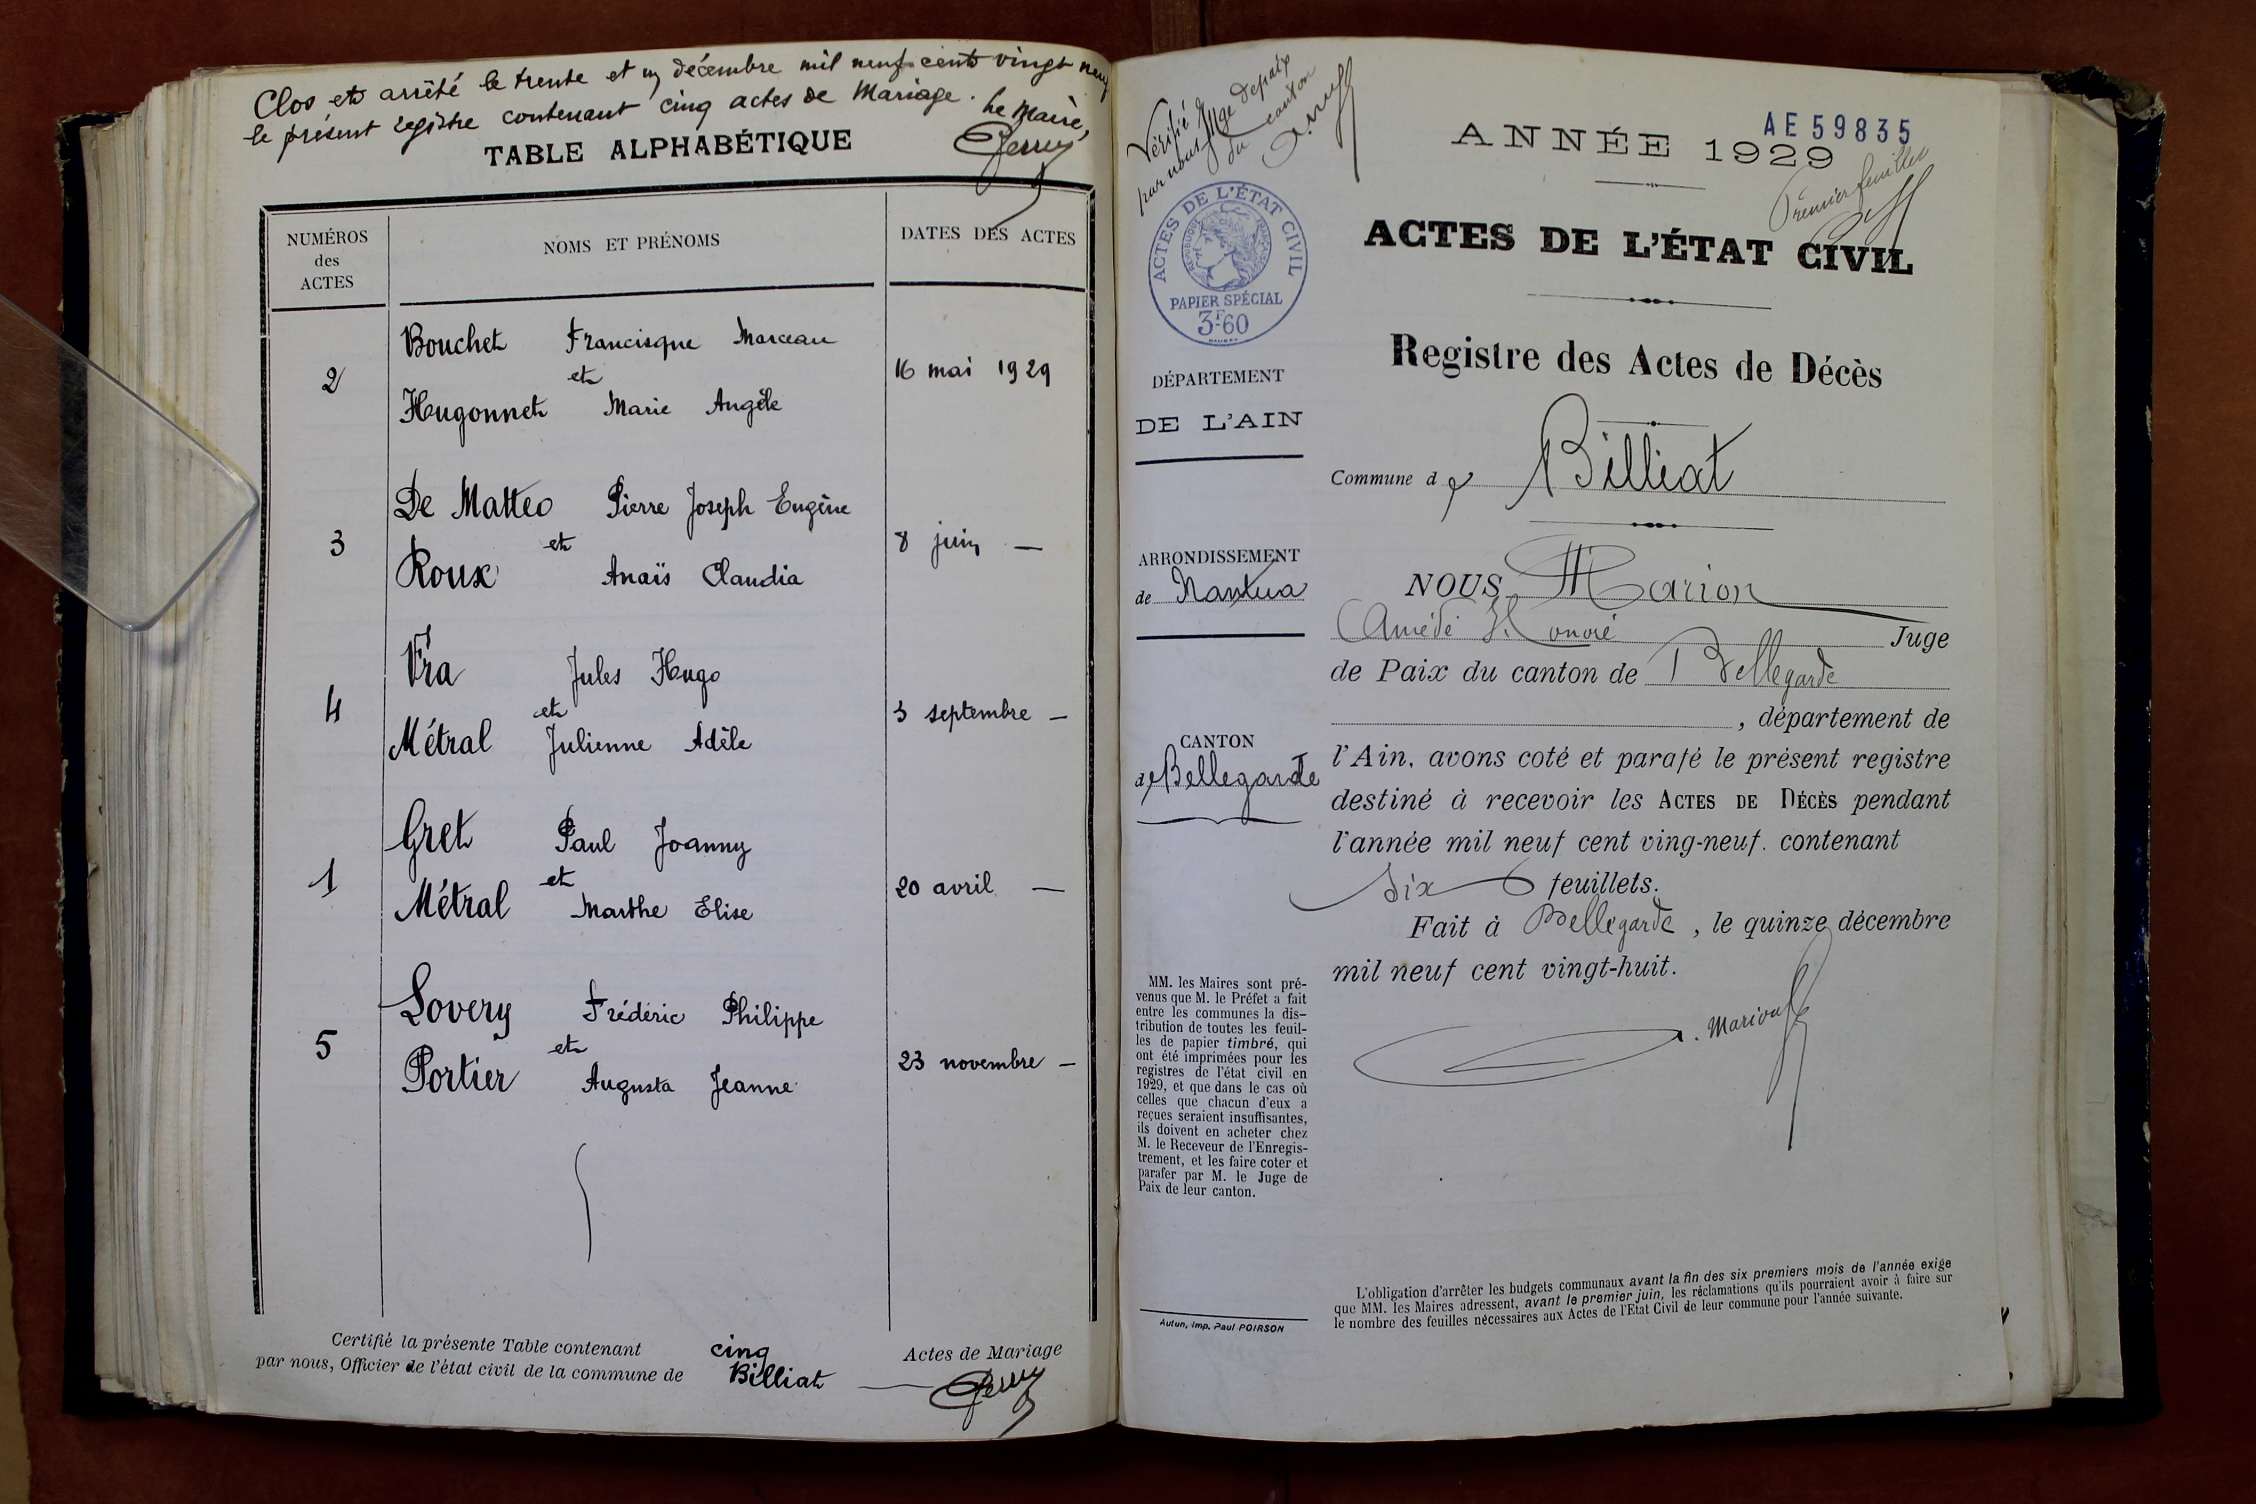 Clos et arrêté le trente et un décembre mil neuf cent vingt neuf
le présent registre contenant cinq actes de Mariage. Le Maire,
TABLE ALPHABÉTIQUE
NUMÉROS
des
ACTES
NOMS ET PRÉNOMS
DATES DES ACTES
Bouchet Francisque Marceau
2 et 16 mai 1929
Hugonnet Marie Angèle
De Matteo Pierre Joseph Eugène
3 et 8 juin —
Roux Anaïs Claudia
Fra Jules Hugo
4 et 3 septembre —
Métral Julienne Adèle
Gret Paul Joanny
1 et 20 avril —
Métral Marthe Elise
Lovery Frédéric Philippe
5 et 23 novembre —
Portier Augusta Jeanne
Certifié la présente Table contenant cinq Actes de Mariage
par nous, Officier de l'état civil de la commune de Billiat
Vérifié
par nous Juge de paix
du canton
ACTES DE L'ÉTAT CIVIL
RÉPUBLIQUE FRANÇAISE
PAPIER SPÉCIAL
3F.60
DÉPARTEMENT
DE L'AIN
ARRONDISSEMENT
de Nantua
CANTON
de Bellegarde
MM. les Maires sont pré-
venus que M. le Préfet a fait
entre les communes la dis-
tribution de toutes les feuil-
les de papier timbré, qui
ont été imprimées pour les
registres de l'état civil en
1929, et que dans le cas où
celles que chacun d'eux a
reçues seraient insuffisantes,
ils doivent en acheter chez
M. le Receveur de l'Enregis-
trement, et les faire coter et
parafer par M. le Juge de
Paix de leur canton.
Autun, Imp. Paul POIRSON
AE 59835
ANNÉE 1929
Premier feuillet
ACTES DE L'ÉTAT CIVIL
Registre des Actes de Décès
Commune de Billiat
NOUS Marion
Amédé Honoré Juge
de Paix du canton de Bellegarde
, département de
l'Ain, avons coté et parafé le présent registre
destiné à recevoir les ACTES DE DÉCÈS pendant
l'année mil neuf cent ving-neuf. contenant
Six 6 feuillets.
Fait à Bellegarde, le quinze décembre
mil neuf cent vingt-huit.
A. Marion
L'obligation d'arrêter les budgets communaux avant la fin des six premiers mois de l'année exige
que MM. les Maires adressent, avant le premier juin, les réclamations qu'ils pourraient avoir à faire sur
le nombre des feuilles nécessaires aux Actes de l'Etat Civil de leur commune pour l'année suivante.